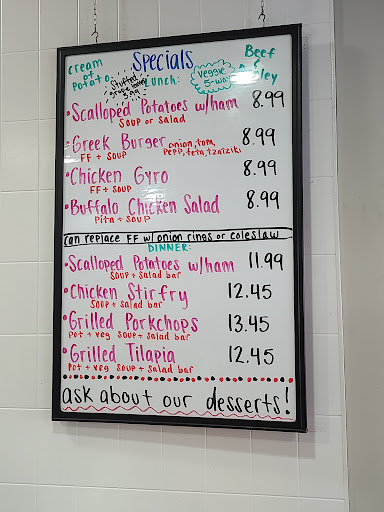 Specials
cream of potato
Stuffed
Veggie 5-way
Beef & ley
Lunch:
• Scalloped Potatoes w/ham 8.99
soup or salad
• Greek Burger onion, tom, pepp, feta, tzatziki 8.99
FF + soup
• Chicken Gyro 8.99
FF + soup
• Buffalo Chicken Salad 8.99
Pita + soup
can replace FF w/ onion rings or coleslaw
DINNER:
• Scalloped Potatoes w/ham 11.99
soup + salad bar
• Chicken Stirfry 12.45
soup + salad bar
• Grilled Porkchops 13.45
pot + veg soup + salad bar
• Grilled Tilapia 12.45
Pot + veg soup + salad bar
ask about our desserts!